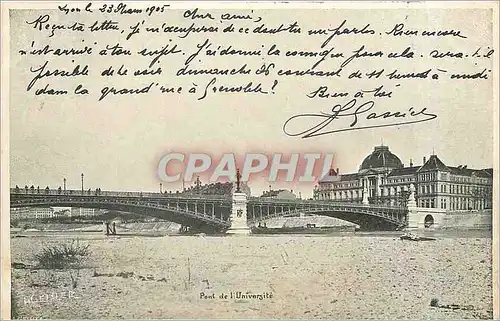 Lyon le 23 Mars 1905
Cher ami,
Reçu ta lettre, je m'occuperai de ce dont tu me parles. Rien encore
n'est arrivé à ton sujet. J'ai donné la consigne pour cela. sera-t-il
possible de te voir dimanche 26 courant de 11 heures à midi
dans la grand' rue à Grenoble?
Bien à toi
CPARHPI
KOEHLER
Pont de l'Université